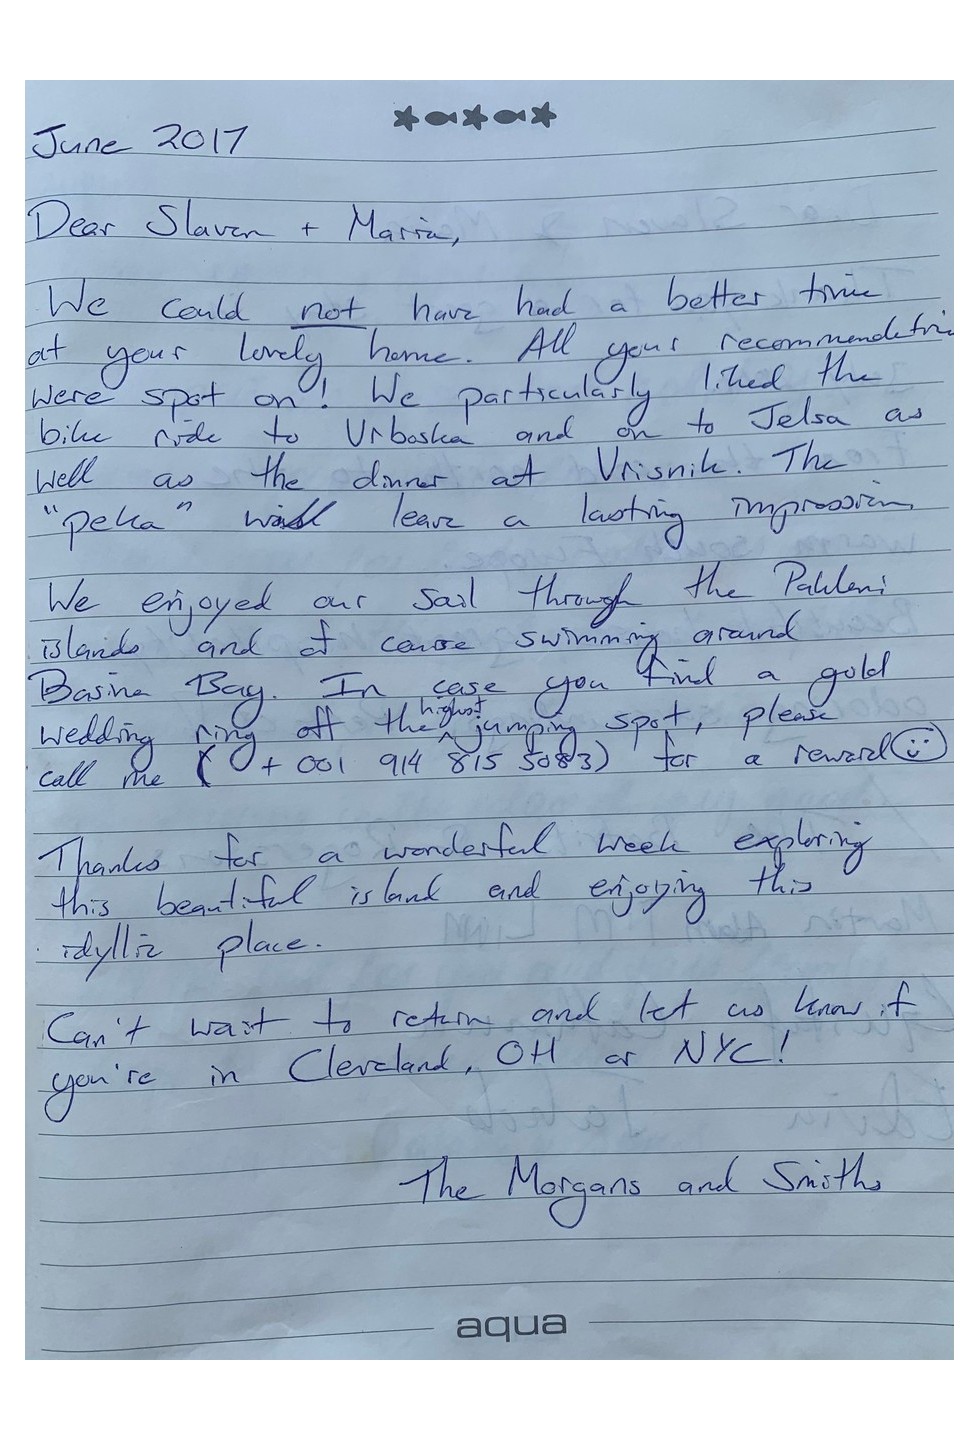 June 2017
Dear Slaven + Maria,
We could not have had a better time
at your lovely home. All your recommendation
were spot on! We particularly liked the
bike ride to Vrboska and on to Jelsa as
well as the dinner at Vrisnik. The
"peka" will leave a lasting impression.
We enjoyed our sail through the Pakleni
islands and of course swimming around
Basina Bay. In case you find a gold
wedding ring off the highest jumping spot, please
call me (+ 001 914 815 5083) for a reward
Thanks for a wonderful week exploring
this beautiful island and enjoying this
idyllic place.
Can't wait to return and let us know if
you're in Cleveland, OH or NYC!
The Morgans and Smiths
aqua